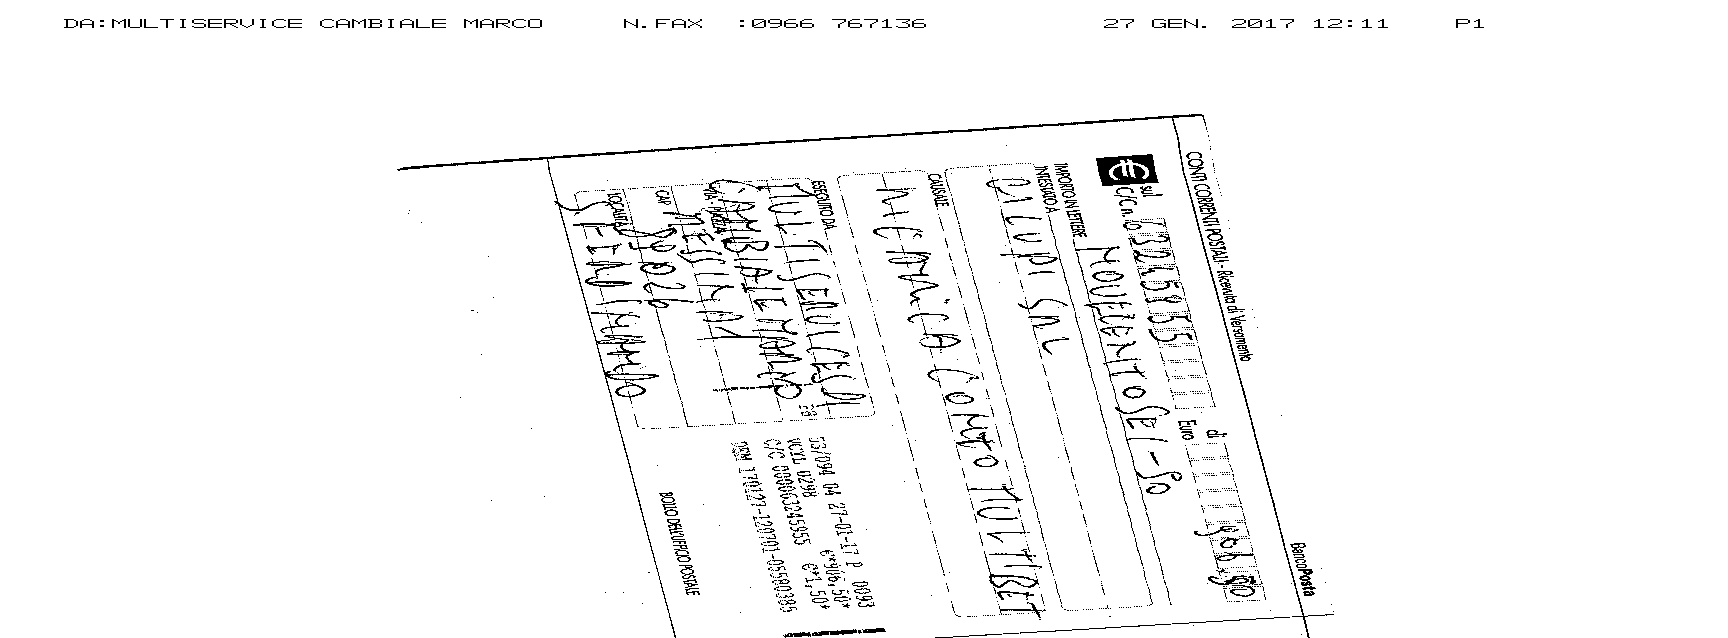 DA:MULTISERVICE CAMBIALE MARCO N.FAX :0966 767136 27 GEN. 2017 12:11 P1
CONTI CORRENTI POSTALI - Ricevuta di Versamento BancoPosta
sul C/C n. 63245955 di Euro 906,50
IMPORTO IN LETTERE NOVECENTOSEI-50
INTESTATO A
CILUPI SRL
CAUSALE
RICARICA CONTO MULTIBET
ESEGUITO DA
MULTISERVICE SDI
CAMBIALE MARCO
VIA - PIAZZA
MESSINA 1
CAP 89026
LOCALITÀ
S. FERDINANDO
53/094 04 27-01-17 P 0093
VCYL 0298 €*906,50*
C/C 000063245955 €*1,50*
170127-120701-05580385
BOLLO DELL'UFFICIO POSTALE